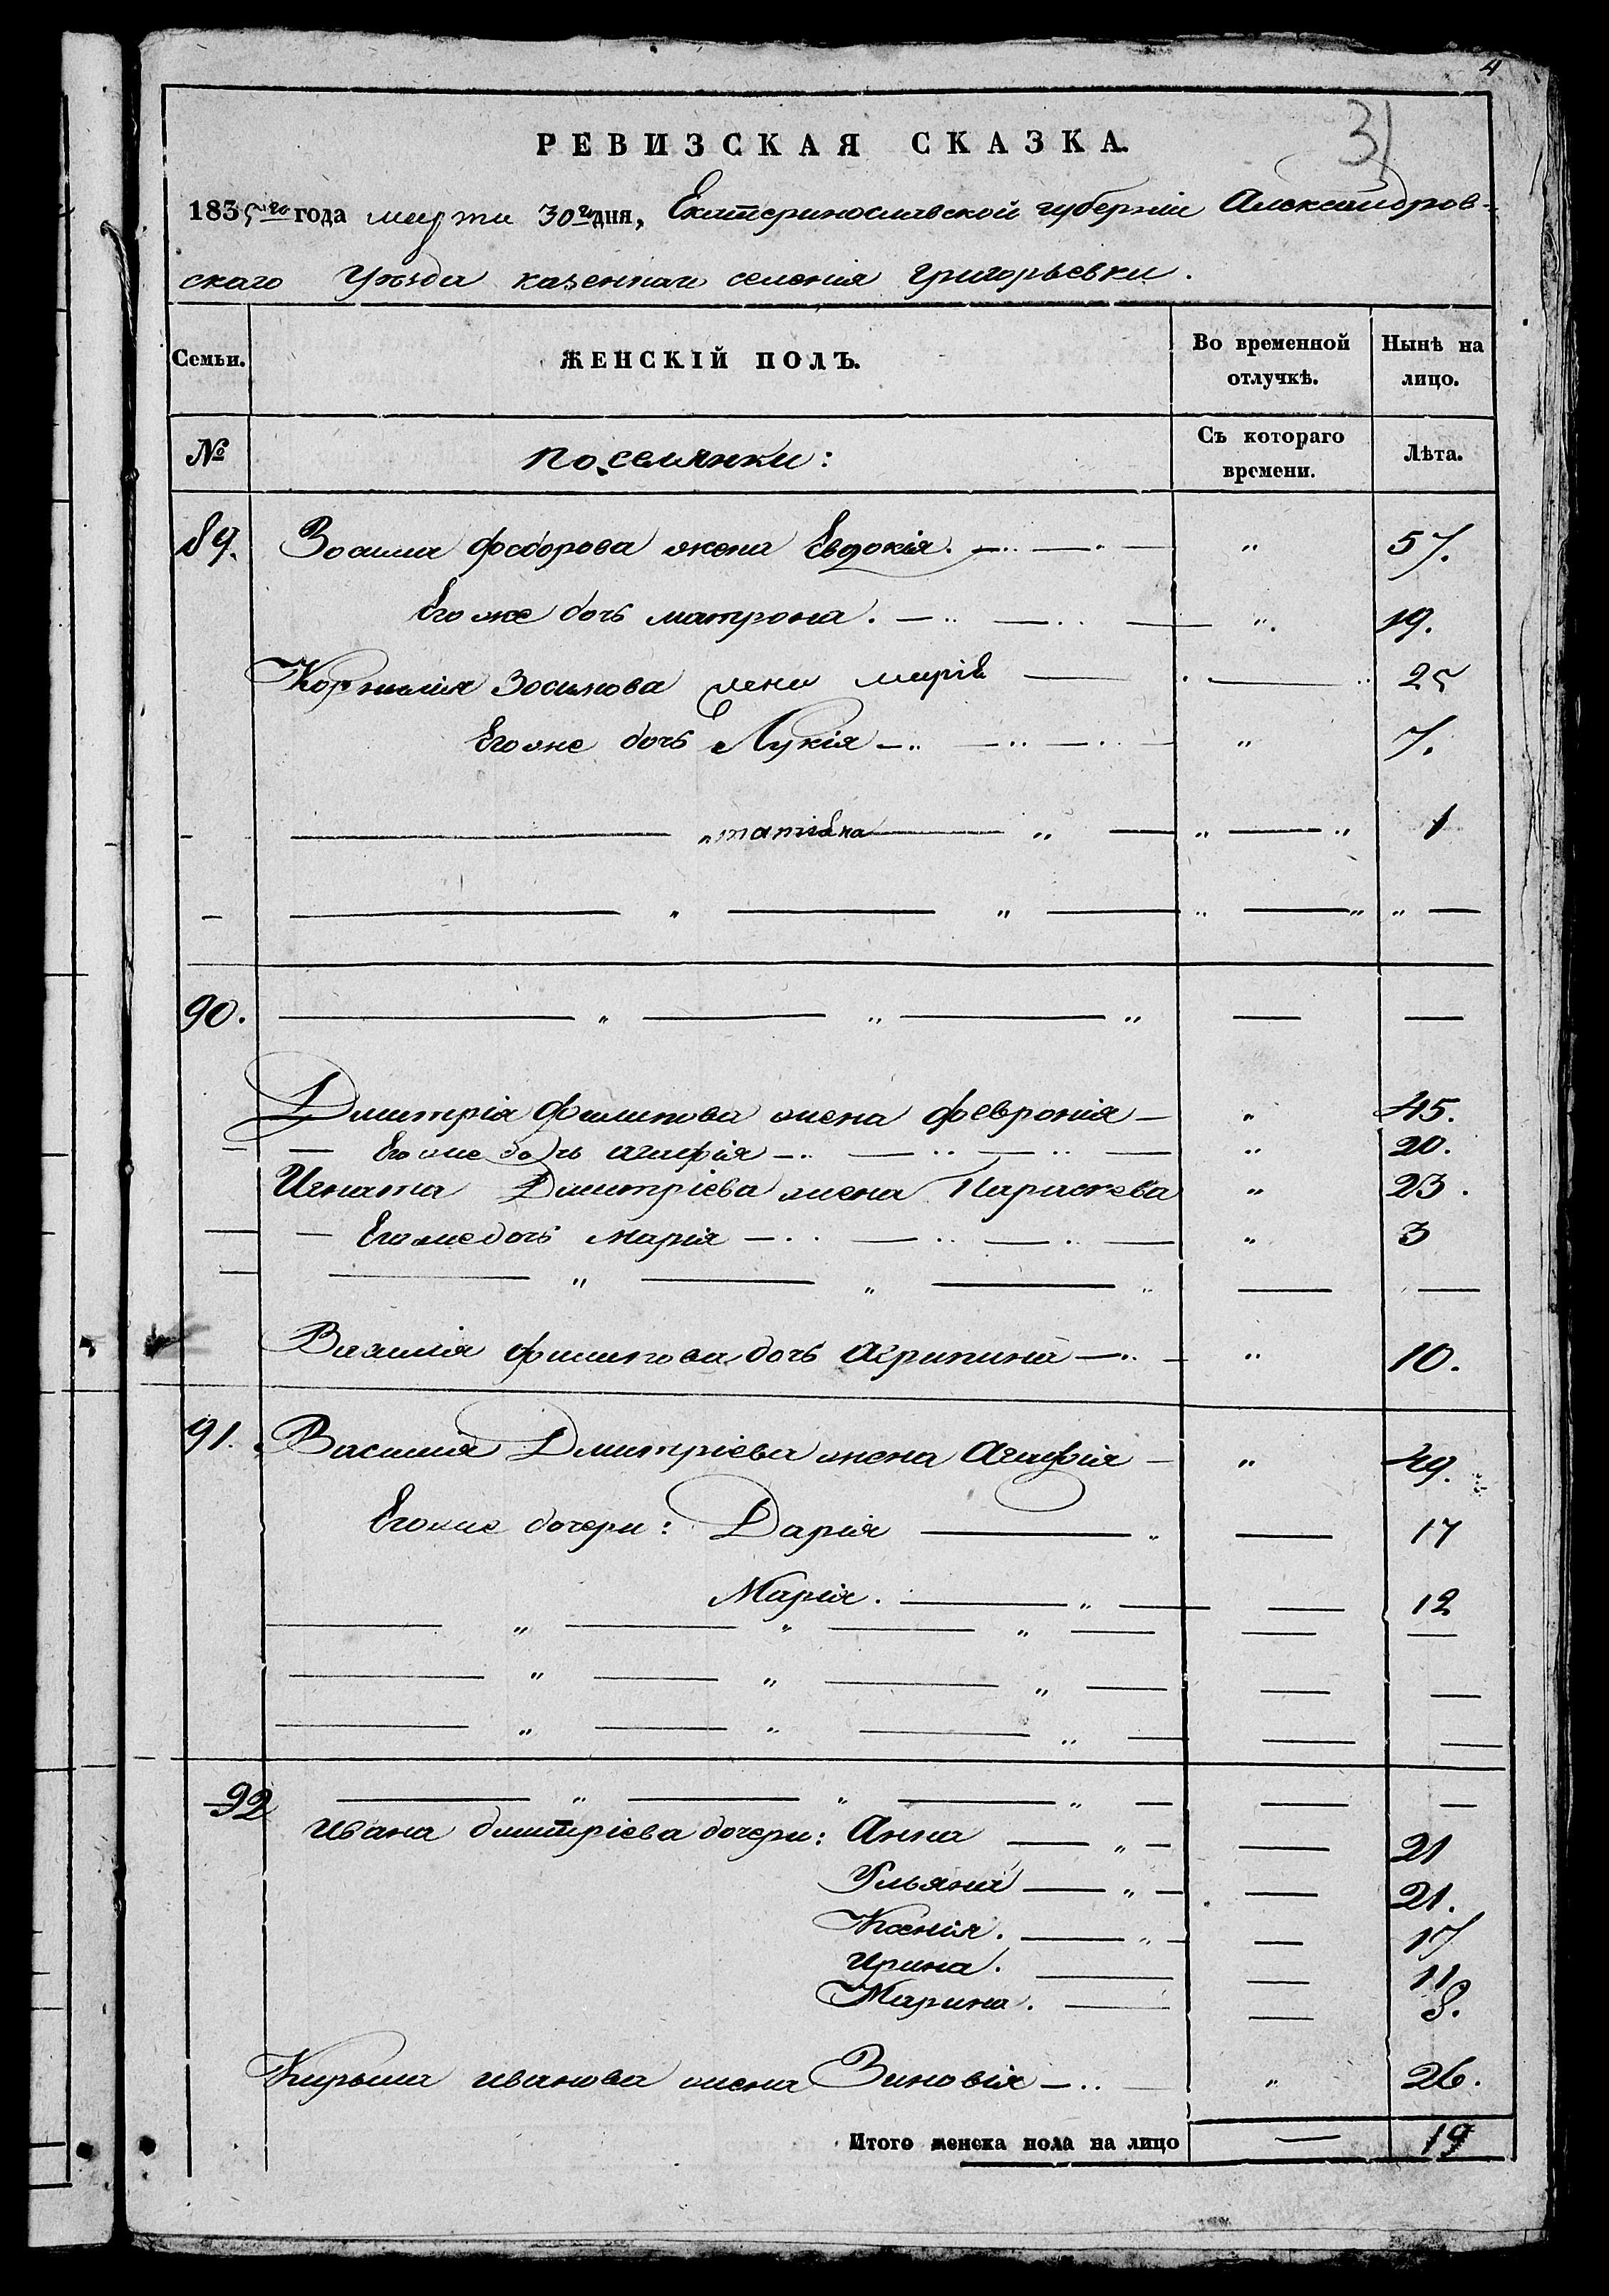 4
31
РЕВИЗСКАЯ СКАЗКА.
1835го года марта 30го дня, Екатеринославской губерніи Александров-
скаго Уѣзда казеннаго селенія Григорьевки.
Семьи. ЖЕНСКІЙ ПОЛЪ. Во временной отлучкѣ. Нынѣ на лицо.
№ поселянки: Съ котораго времени. Лѣта.
89. Зосима Федорова жена Евдокія. „ 57.
Его же дочь матрона. „ 19.
Корнилія Зосимова жена марія 25
Его же дочь Лукія „ 7.
„ татіана „ „ „ 1
„ „ „ „ „
90. „ „ „
Дмитрія Филипова жена Февронія „ 45.
Его же дочь агафія „ 20.
Игната Дмитріева жена Параскева „ 23.
Его же дочь Марія „ 3
„ „ „
Василія Филипова дочь Агрипина „ 10.
91. Василия Дмитріева жена Агафія „ 49.
Его же дочери: Дарія „ 17
Марія. „ 12
„ „ „
„ „ „
„ „ „
92 „ „ „
Ивана дмитріева дочери: Анна „ 21
Ульяна „ 21.
Ксенія. „ 17
Ирина. 11
Марина. 8.
Кирыла иванова жена Зиновія „ 26.
Итого женска пола на лицо 19